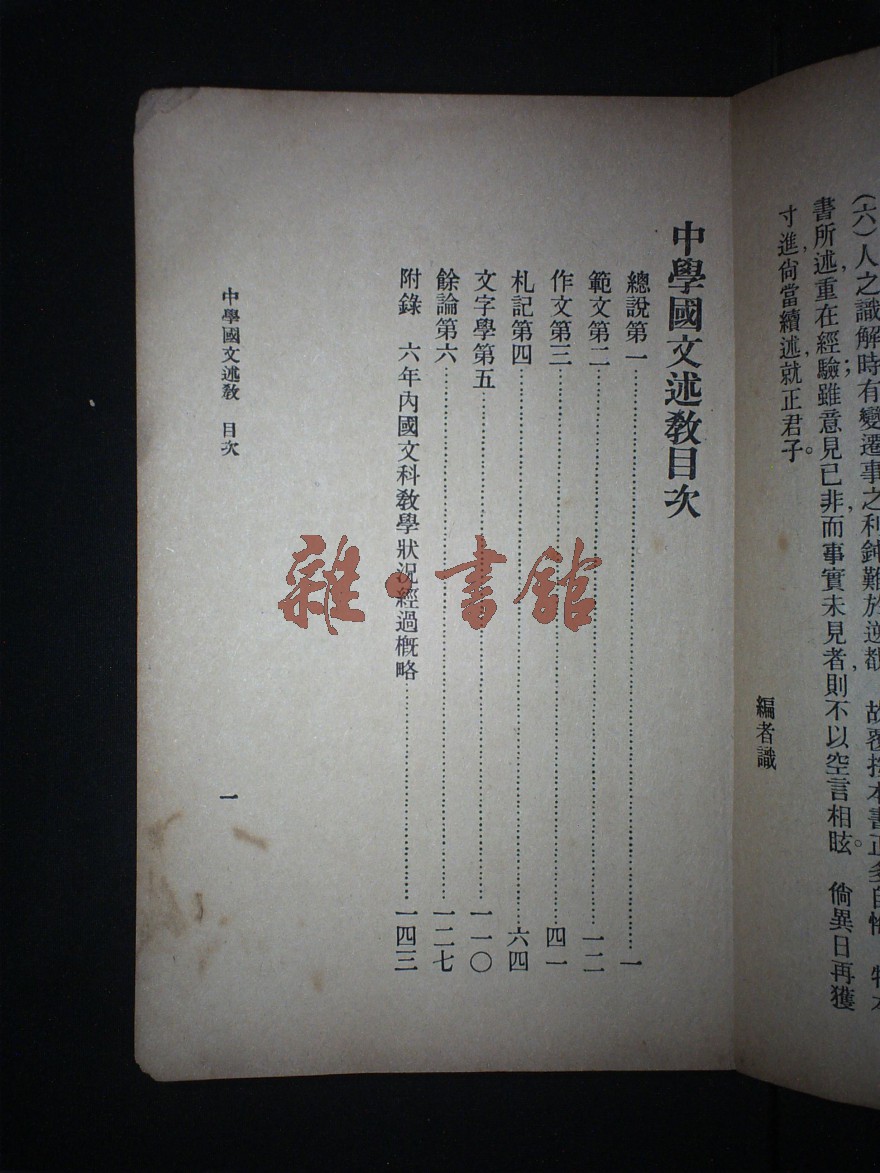 (六)人之識解時有變遷事之利鈍難於逆覩，故覆按本書正多自惟 特本
書所述，重在經驗；雖意見已非，而事實未見者，則不以空言相眩。倘異日再獲
寸進，尙當續述，就正君子。
編者識
中學國文述敎目次
總說第一 一
範文第二 一二
作文第三 四一
札記第四 六四
文字學第五 一一〇
餘論第六 一二七
附錄 六年內國文科敎學狀況經過槪略 一四三
中學國文述敎 目次
一
雜·書館